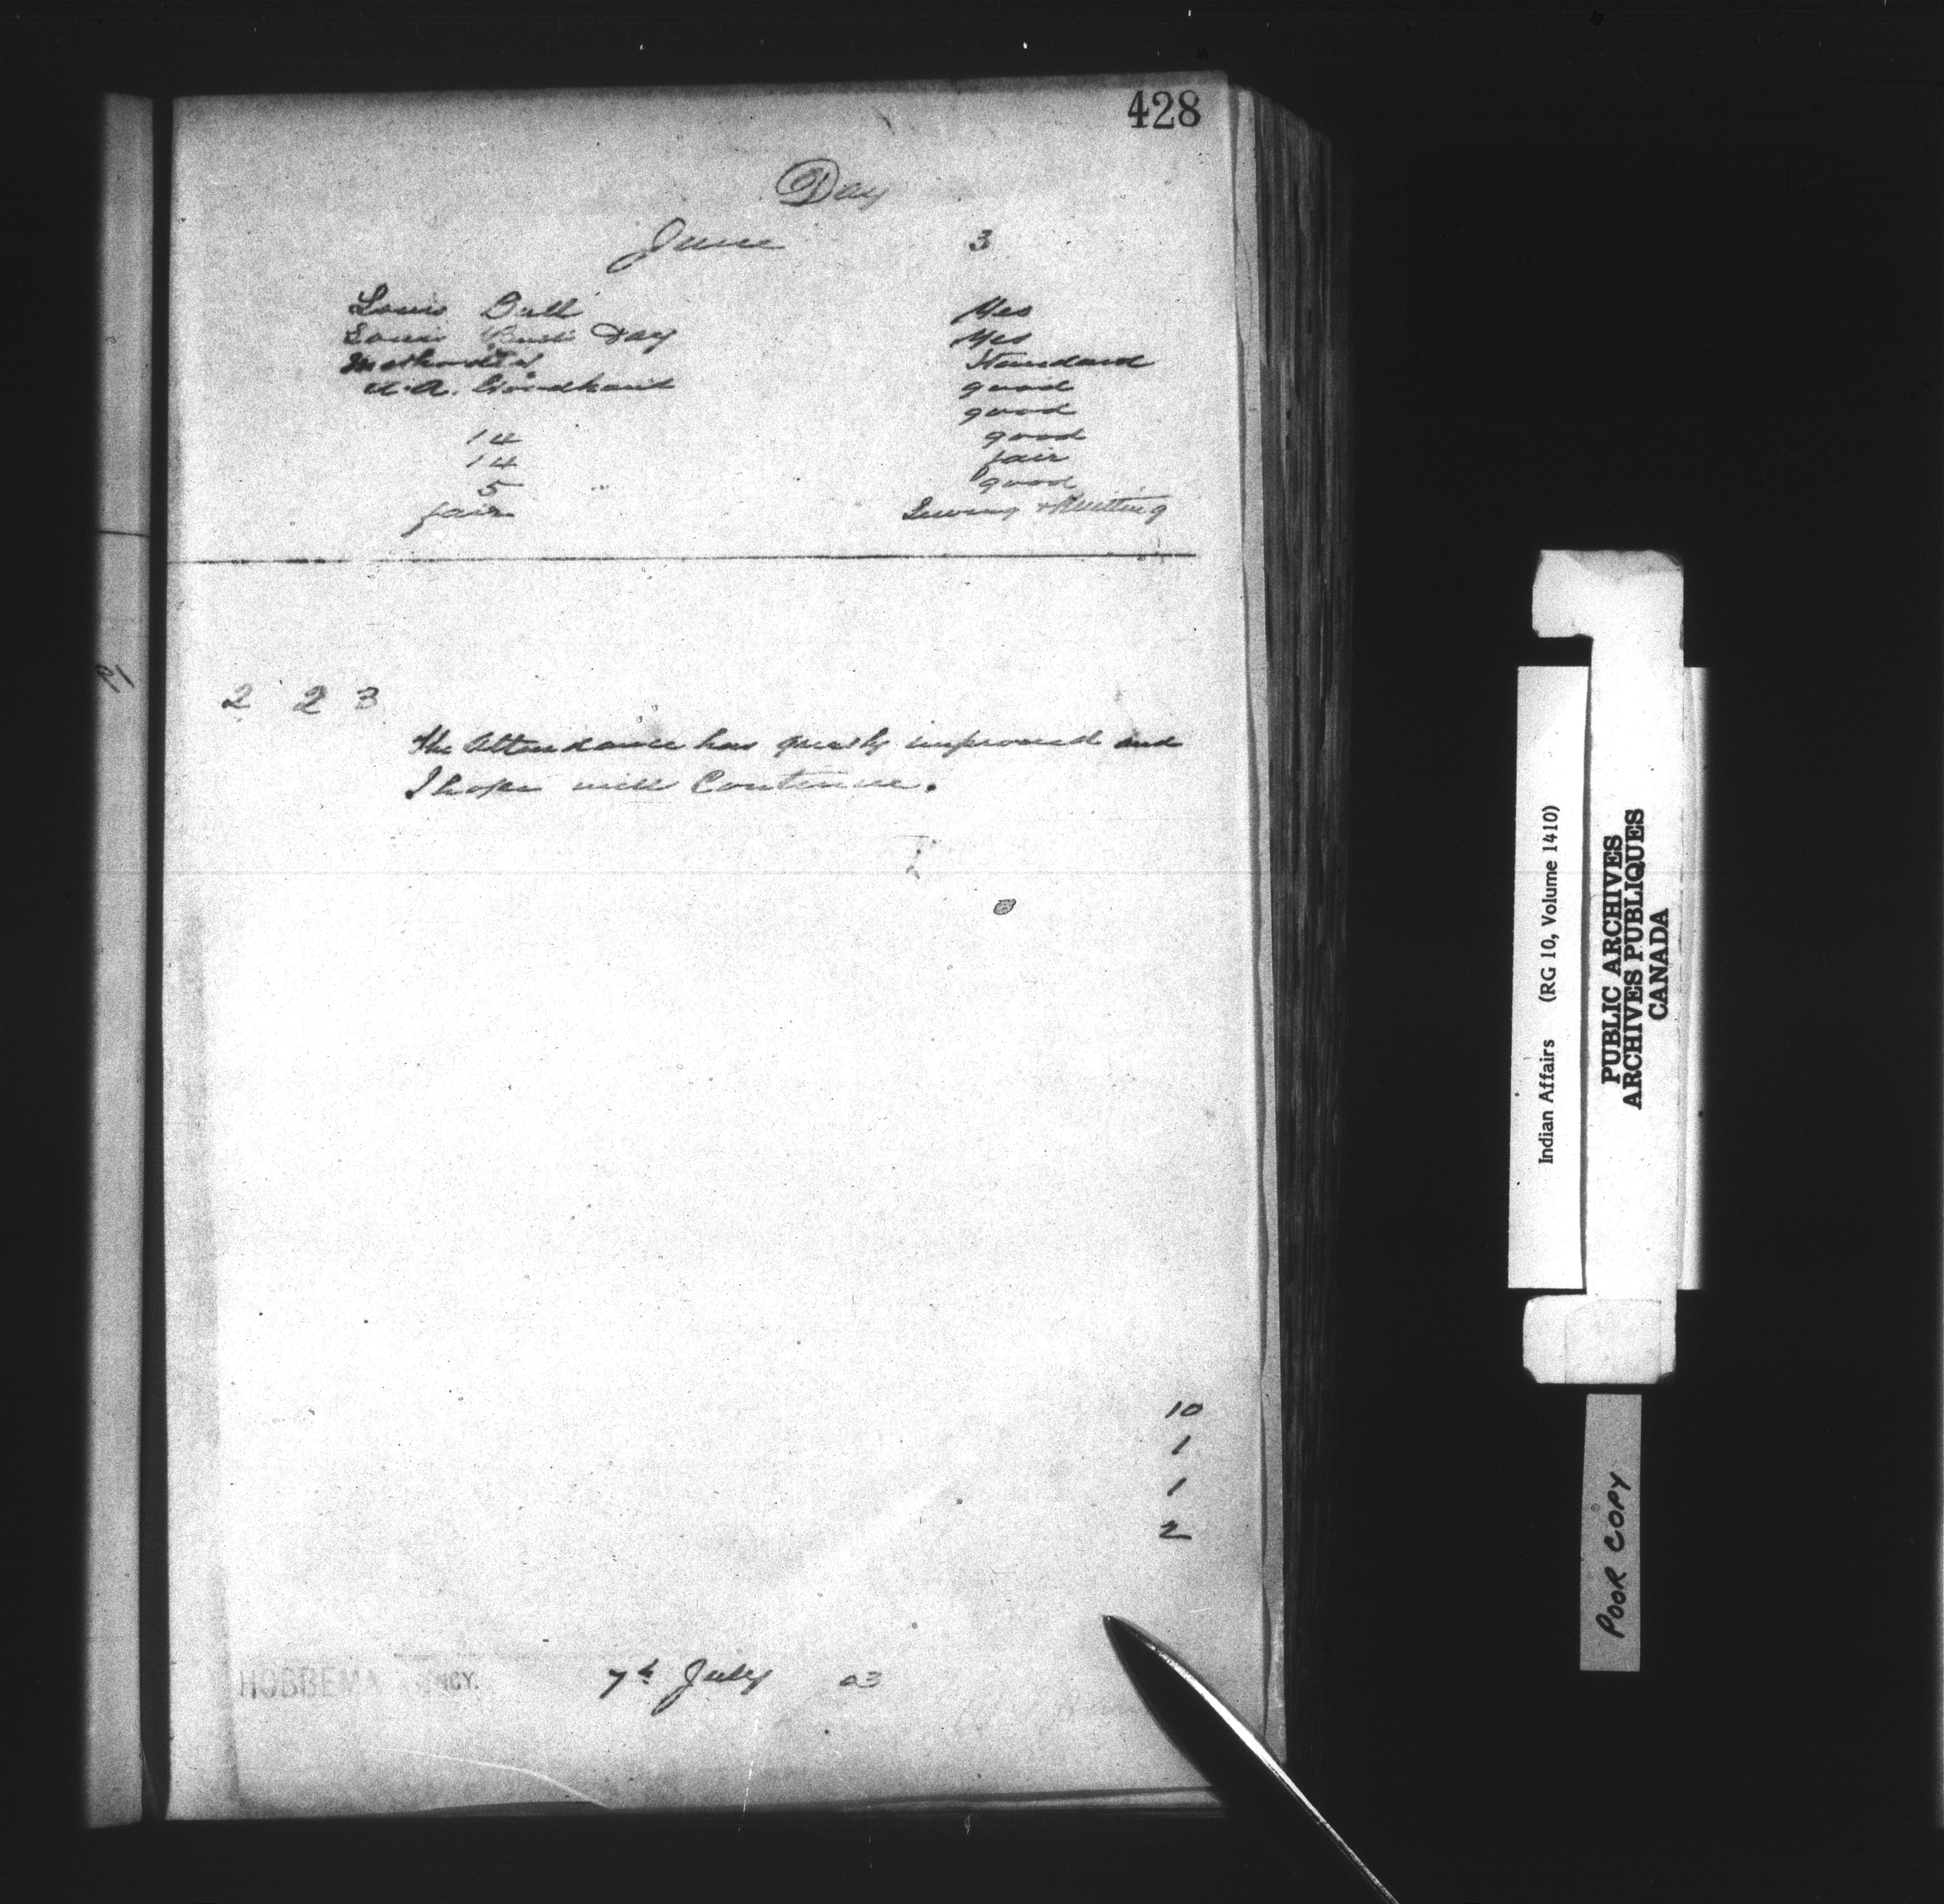 428
Day
June 3
Louis Bull Yes
Louis Bull Day Yes
Methodist Standard
A. Goodhand good
good
14 good
14 fair
5 good
fair Sewing & Knitting
2 2 3
The Attendance has greatly improved and
I hope will Continue.
10
1
1
2
HOBBEMA AGENCY.
7th July 03
Indian Affairs (RG 10, Volume 1410)
PUBLIC ARCHIVES
ARCHIVES PUBLIQUES
CANADA
POOR COPY